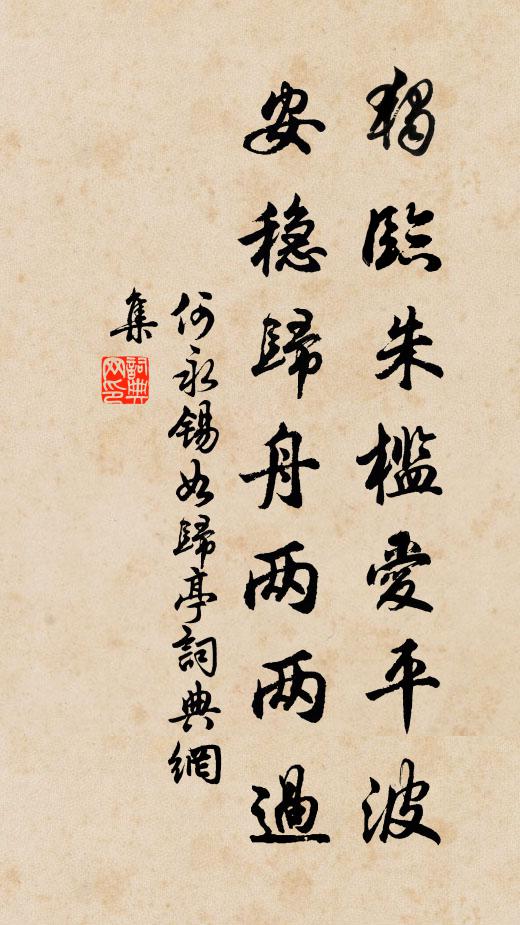 獨臨朱檻愛平波
安穏歸舟两两過
何永錫如歸亭詞典網
集
詞典
网印